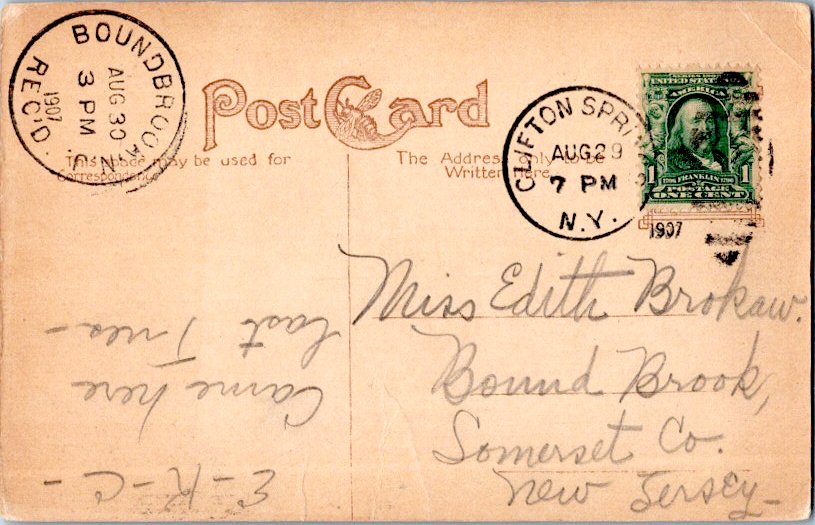 BOUNDBROOK, N.J.
AUG 30
3 PM
1907
REC'D.
Post Card
CLIFTON SPRINGS
AUG 29
7 PM
N.Y.
1907
AMERICA
1706 FRANKLIN 1790
1 POSTAGE 1
ONE CENT
This space may be used for
Correspondence
The Address only to be
Written here.
Miss Edith Brokaw.
Bound Brook,
Somerset Co.
New Jersey-
Came here
last Tues-
E-R-C-